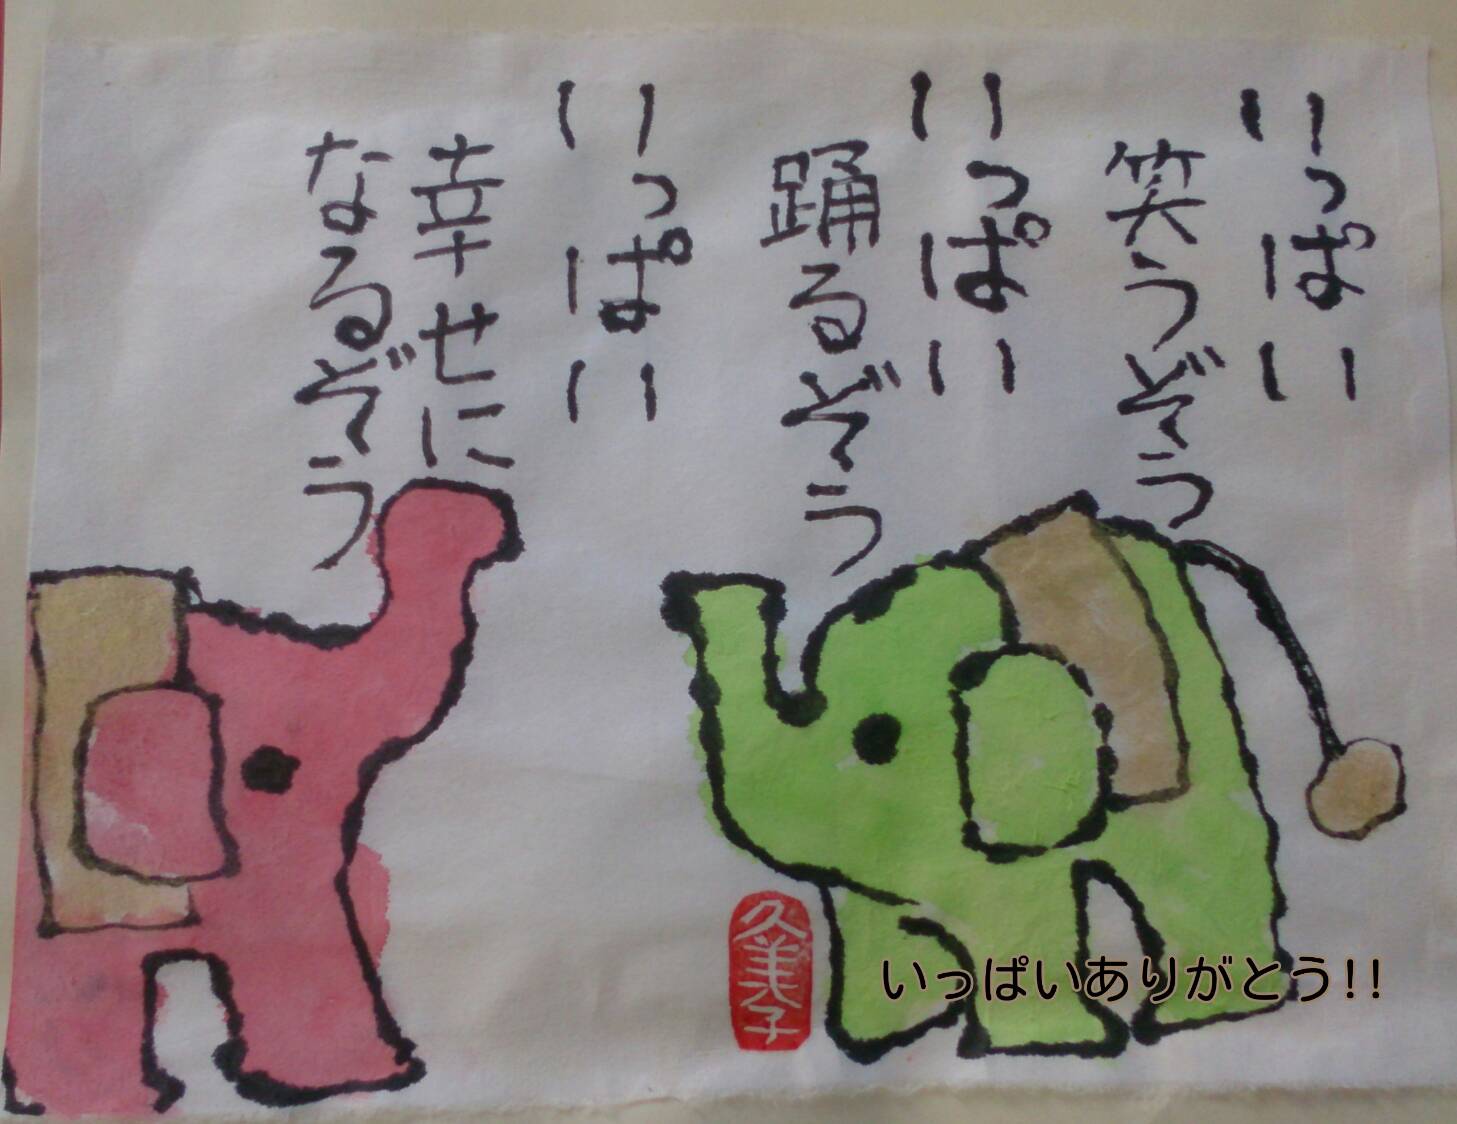 いっぱい
笑うぞう
いっぱい
踊るぞう
いっぱい
幸せに
なるぞう
久美子
いっぱいありがとう!!